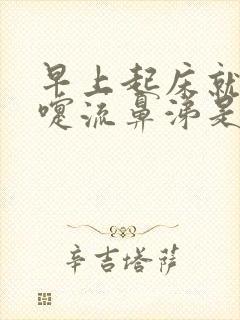 早上起床就
嚏流鼻涕是
辛吉塔萨